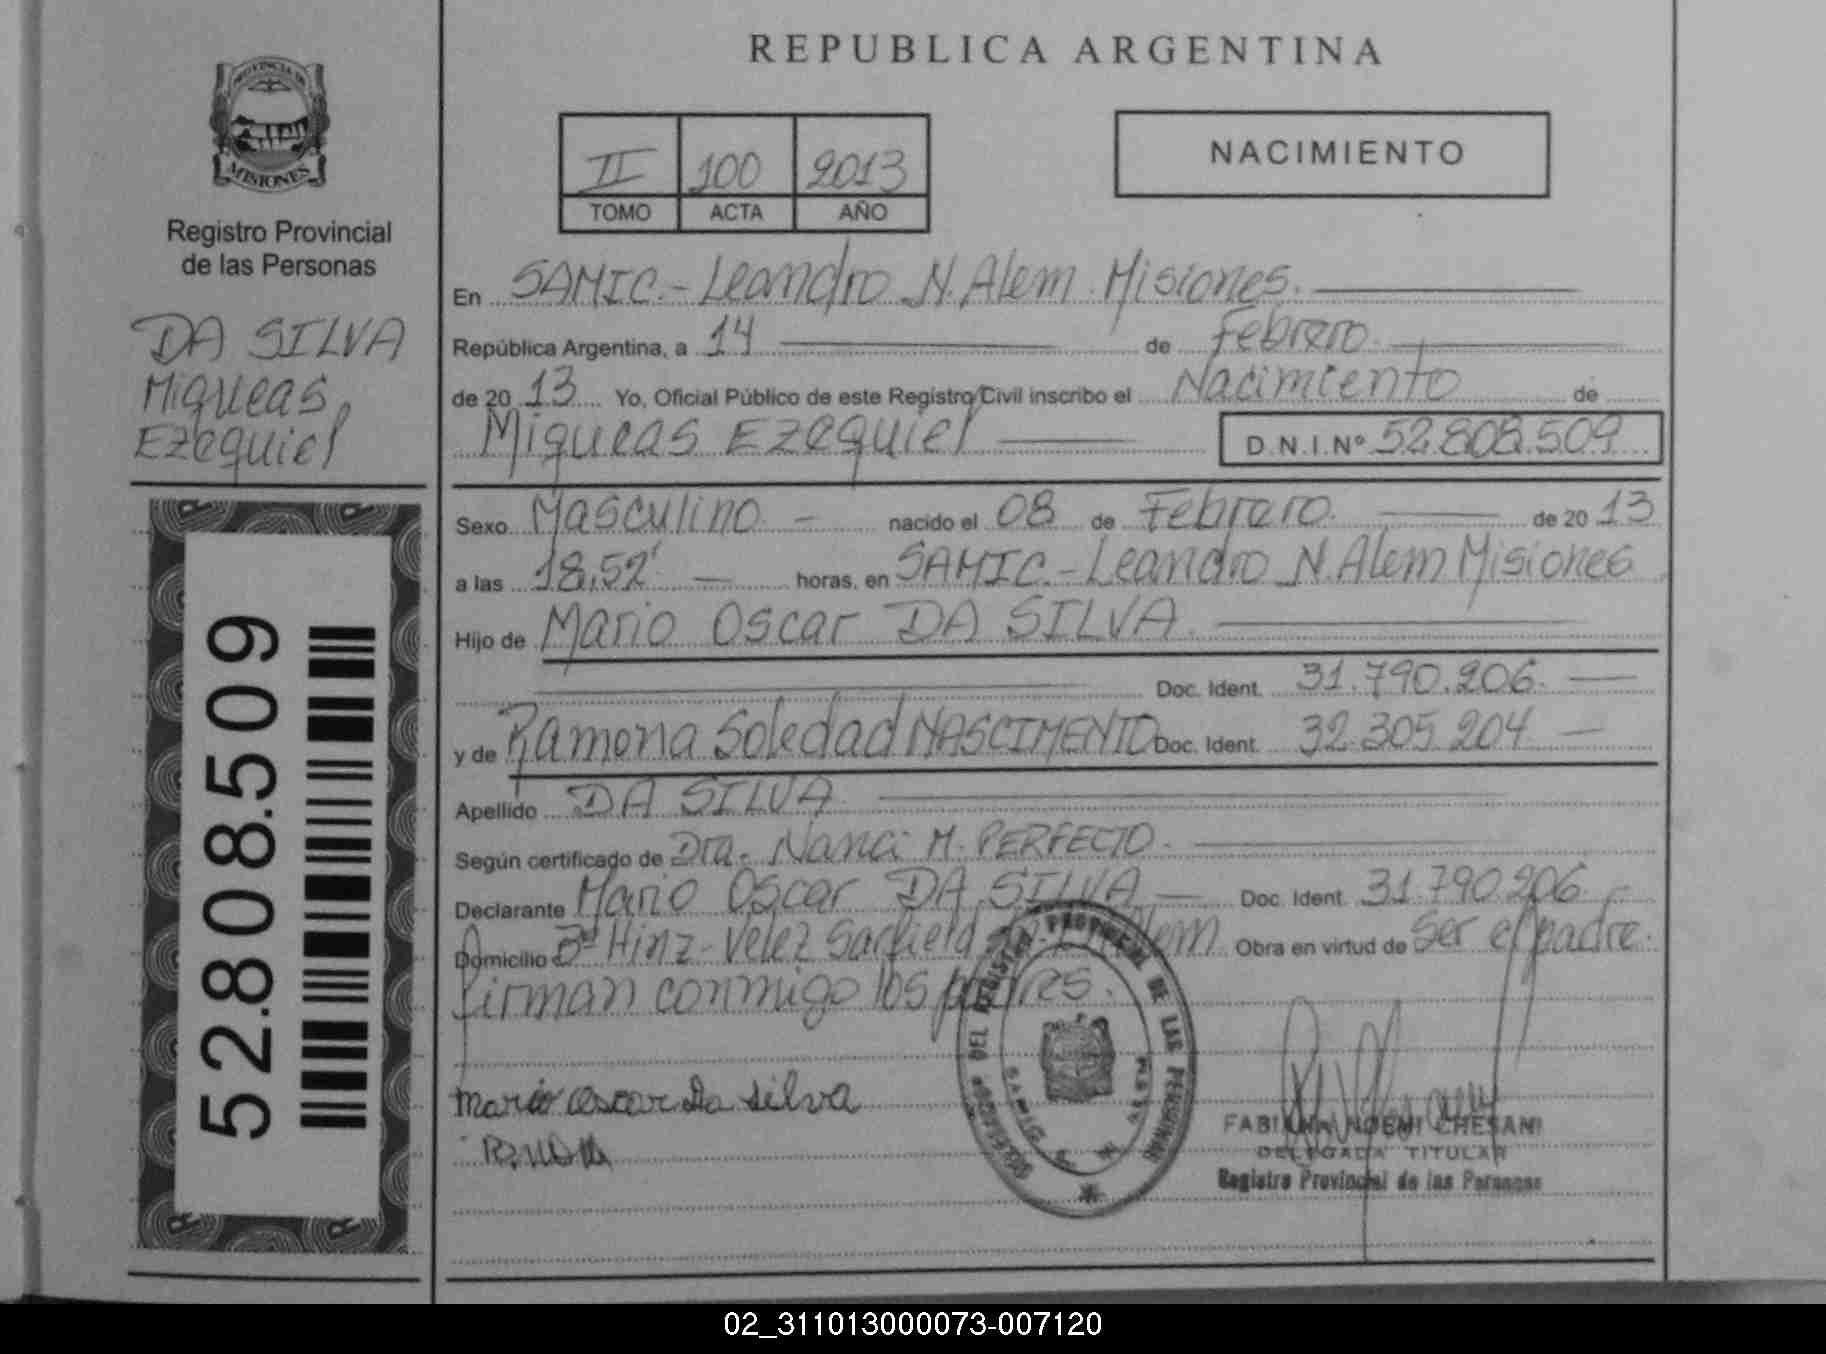 REPUBLICA ARGENTINA
PROVINCIA DE
MISIONES
Registro Provincial
de las Personas
DA SILVA
Miqueas
Ezequiel
52.808.509
II 100 2013
TOMO ACTA AÑO
NACIMIENTO
En SAMIC.- Leandro N. Alem. Misiones.
República Argentina, a 14 de Febrero.
de 20 13 Yo, Oficial Público de este Registro Civil inscribo el Nacimiento de
Miqueas Ezequiel D.N.I.Nº 52.808.509
Sexo Masculino - nacido el 08 de Febrero. de 20 13
a las 18,52' horas, en SAMIC.- Leandro N. Alem Misiones
Hijo de Mario Oscar DA SILVA.
Doc. Ident. 31.790.206.
y de Ramona Soledad NASCIMENTO Doc. Ident. 32.305.204
Apellido DA SILVA.
Según certificado de Dra. Nanci M. PERFECTO.
Declarante Mario Oscar DA SILVA Doc. Ident. 31.790.206.
Domicilio Bº Hinz - Velez Sarfield Alem Obra en virtud de Ser el padre.
Firman conmigo los padres.
mario oscar Da silva
DEL REGISTRO PROVINCIAL DE LAS PERSONAS
FABIANA NOEMI CHESANI
DELEGADA TITULAR
Registro Provincial de las Personas
02_311013000073-007120